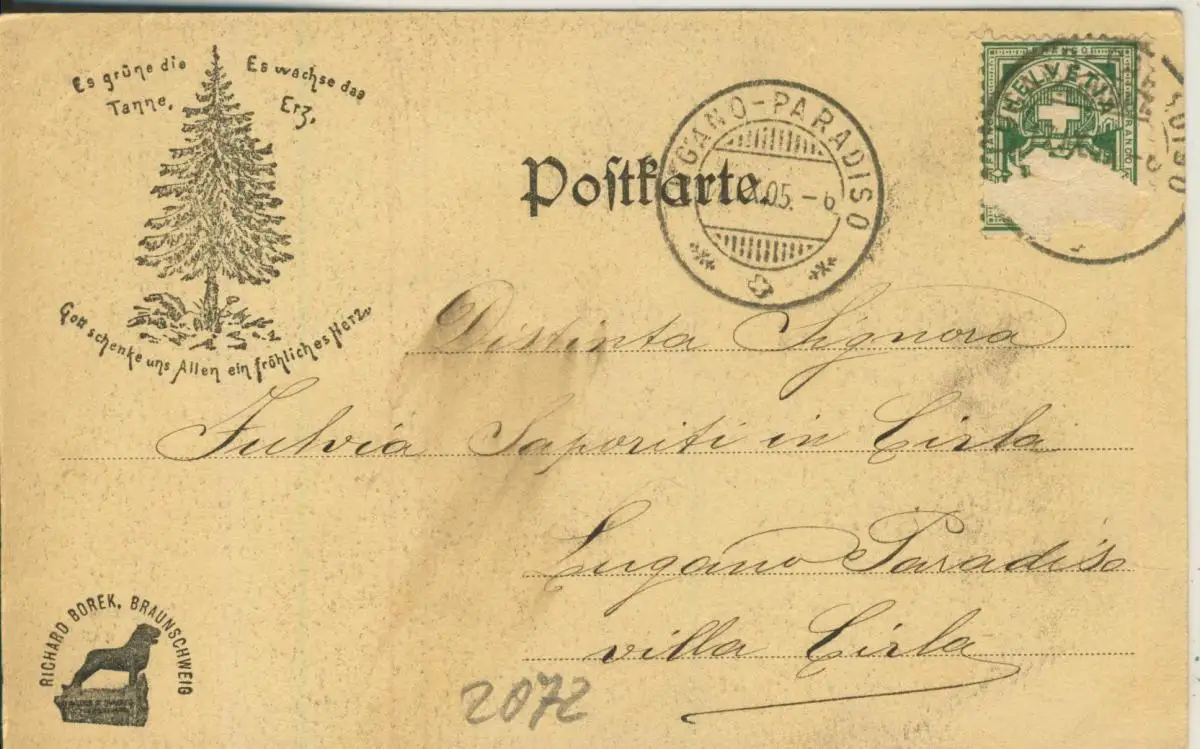 Es grüne die
Tanne.
Es wachse das
Erz.
Gott schenke uns Allen ein fröhliches Herz.
Postkarte.
GANO-PARADISO
05.-6
HELVETIA
FRANCO
Distinta Signora
Fulvia Saporiti in Cirla
Lugano Paradiso
villa Cirla
RICHARD BOREK, BRAUNSCHWEIG
2072